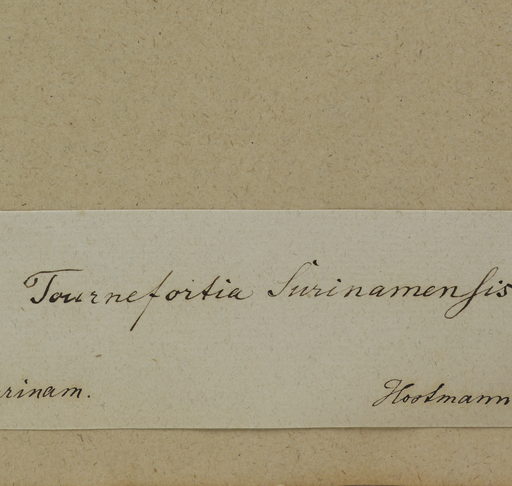 Tournefortia Surinamensis
rinam.
Hostmann